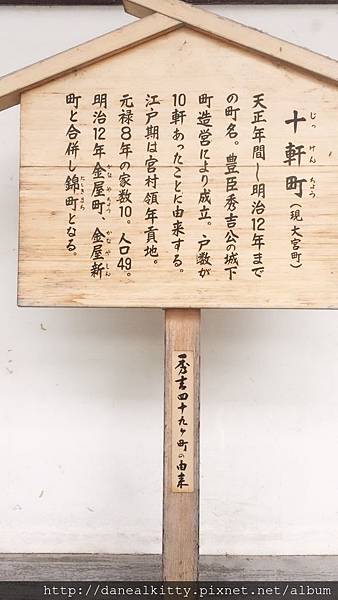 じっけんちょう
十軒町(現 大宮町)
天正年間〜明治12年まで
の町名。豊臣秀吉公の城下
町造営により成立。戸数が
10軒あったことに由来する。
江戸期は宮村領年貢地。
元禄8年の家数10。人口49。
かなやちょう かなやしん
明治12年金屋町、金屋新
にしきまち
町と合併し錦町となる。
秀吉四十九ヶ町の由来
http://danealkitty.pixnet.net/album